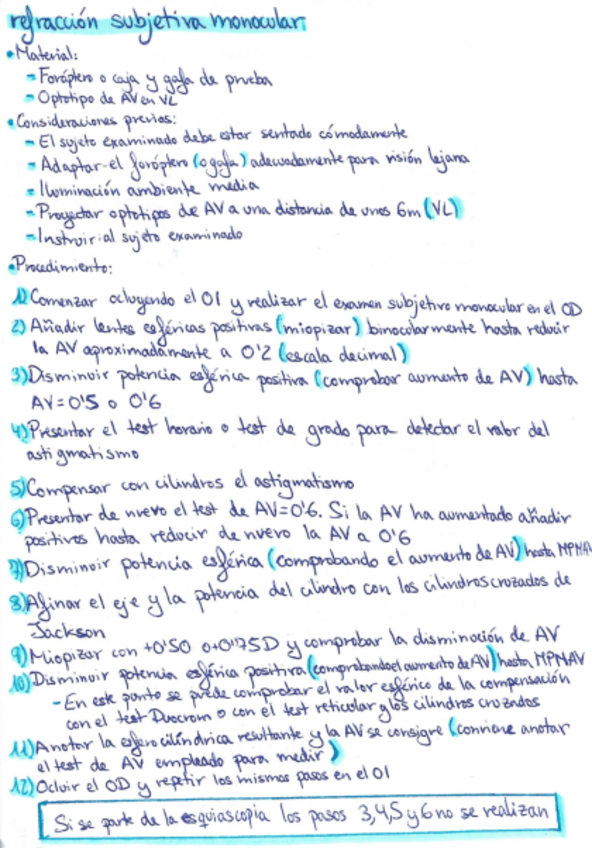 refracción subjetiva monocular
• Material:
- Foróptero o caja y gafa de prueba
- Optotipo de AV en VL
• Consideraciones previas:
- El sujeto examinado debe estar sentado cómodamente
- Adaptar el foróptero (o gafa) adecuadamente para visión lejana
- Iluminación ambiente media
- Proyectar optotipos de AV a una distancia de unos 6m (VL)
- Instruir al sujeto examinado
• Procedimiento:
1) Comenzar ocluyendo el OI y realizar el examen subjetivo monocular en el OD
2) Añadir lentes esféricas positivas (miopizar) binocularmente hasta reducir
la AV aproximadamente a 0'2 (escala decimal)
3) Disminuir potencia esférica positiva (comprobar aumento de AV) hasta
AV=0'5 o 0'6
4) Presentar el test horario o test de grado para detectar el valor del
astigmatismo
5) Compensar con cilindros el astigmatismo
6) Presentar de nuevo el test de AV=0'6. Si la AV ha aumentado añadir
positivos hasta reducir de nuevo la AV a 0'6
7) Disminuir potencia esférica (comprobando el aumento de AV) hasta MPMAV
8) Afinar el eje y la potencia del cilindro con los cilindros cruzados de
Jackson
9) Miopizar con +0'50 o +0'75D y comprobar la disminución de AV
10) Disminuir potencia esférica positiva (comprobando el aumento de AV) hasta MPMAV
- En este punto se puede comprobar el valor esférico de la compensación
con el test Duocrom o con el test reticular y los cilindros cruzados
11) Anotar la esferocilíndrica resultante y la AV se consigue (conviene anotar
el test de AV empleado para medir)
12) Ocluir el OD y repetir los mismos pasos en el OI
Si se parte de la esquiascopia los pasos 3,4,5 y 6 no se realizan